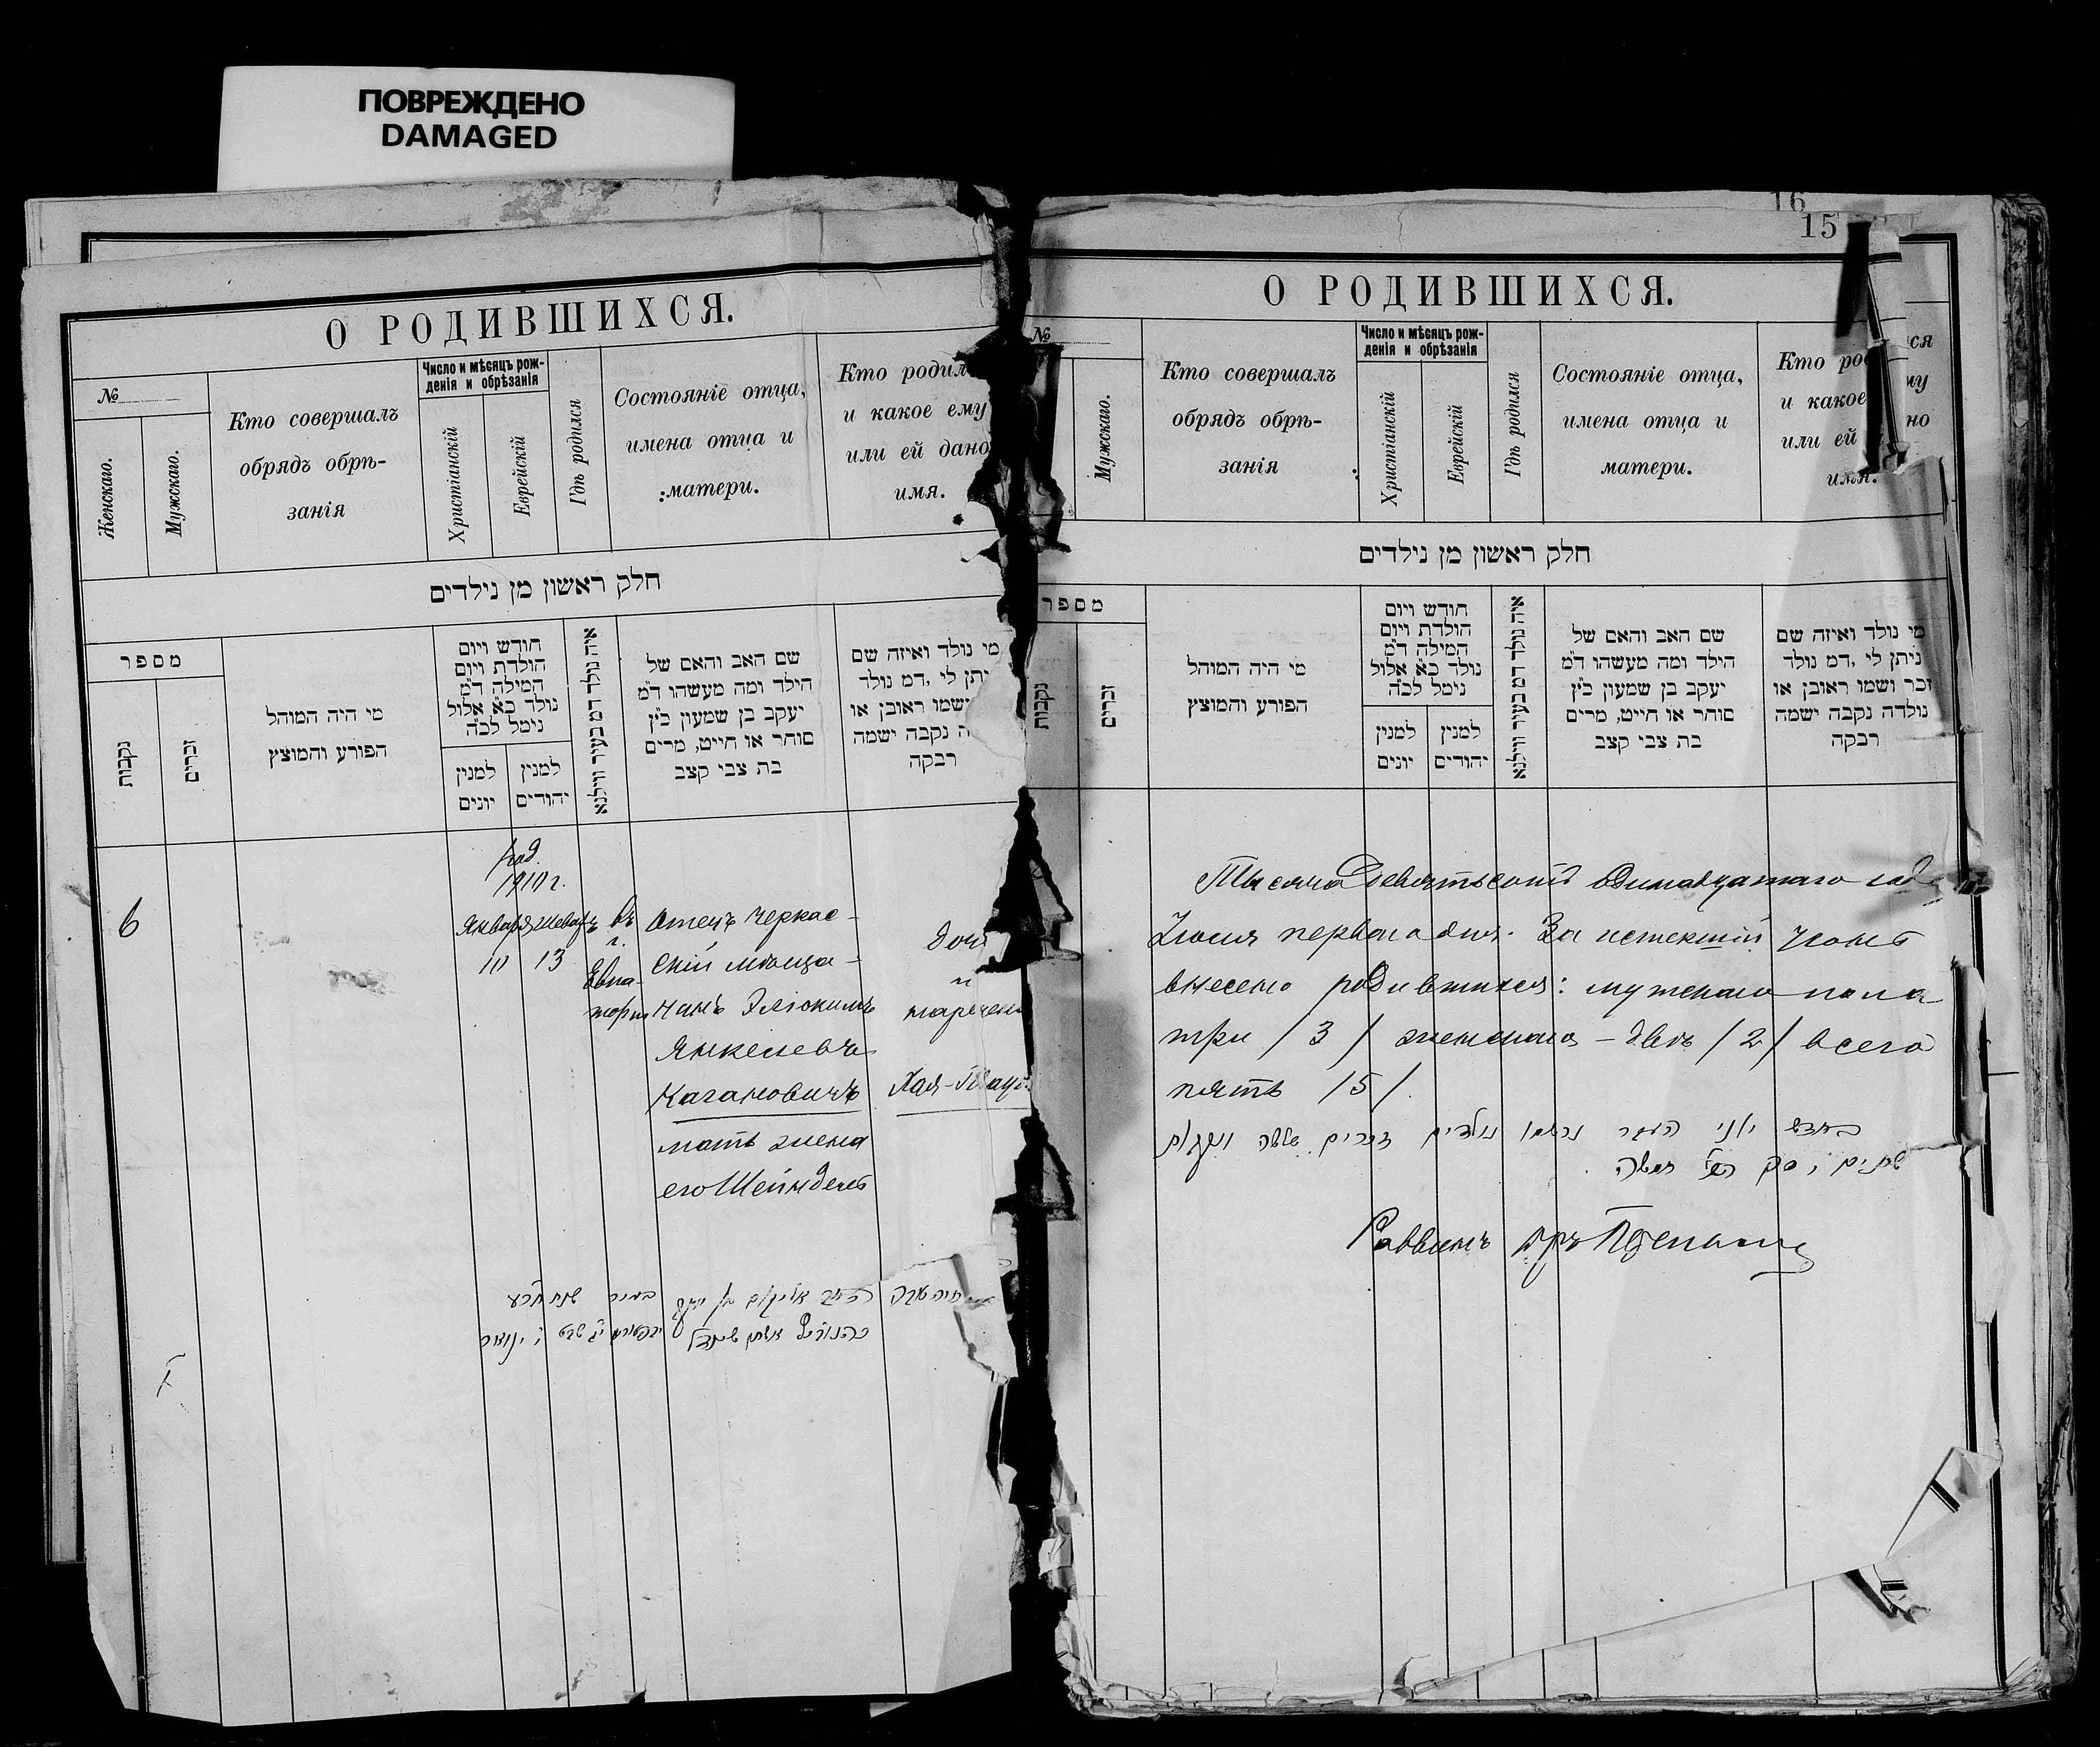 ПОВРЕЖДЕНО
DAMAGED
О РОДИВШИХСЯ.
№
Женскаго.
Мужскаго.
Кто совершалъ
обрядъ обрѣ-
занія
Число и мѣсяцъ рож-
денія и обрѣзанія
Христіанскій
Еврейскій
Гдѣ родился
Состояніе отца,
имена отца и
матери.
Кто родил
и какое ему
или ей дано
имя.
חלק ראשון מן נילדים
מספר
נקבות
זכרים
מי היה המוהל
הפורע והמוצץ
חודש ויום
הולדת ויום
המילה ד״מ
נולד כ״א אלול
נימל לכ״ה
למנין
יונים
למנין
יהודים
איה נולד דמ בעיר ווילנא
שם האב והאם של
הילד ומה מעשהו ד״מ
יעקב בן שמעון כ״ץ
סוחר או חייט, מרים
בת צבי קצב
מי נולד ואיזה שם
יתן לי ,דמ נולד
ישמו ראובן או
ה נקבה ישמה
רבקה
6
1910 г.
Января
10
Шеватъ
13
въ
г.
Евпа-
торіи
Отецъ Черкас-
скій мѣща-
нинъ Эліокимъ
Янкелевъ
Кагановичъ
мать жена
его Шейндель
доч
и
наречена
Хая-
16
15
О РОДИВШИХСЯ.
№
Мужскаго.
Кто совершалъ
обрядъ обрѣ-
занія
Число и мѣсяцъ рож-
денія и обрѣзанія
Христіанскій
Еврейскій
Гдѣ родился
Состояніе отца,
имена отца и
матери.
Кто род
и какое
или ей
имя.
חלק ראשון מן נילדים
מספר
נקבות
זכרים
מי היה המוהל
הפורע והמוצץ
חודש ויום
הולדת ויום
המילה ד״מ
נולד כ״א אלול
נימל לכ״ה
למנין
יונים
למנין
יהודים
איה נולד דמ בעיר ווילנא
שם האב והאם של
הילד ומה מעשהו ד״מ
יעקב בן שמעון כ״ץ
סוחר או חייט, מרים
בת צבי קצב
מי נולד ואיזה שם
ניתן לי ,דמ נולד
זכר ושמו ראובן או
נולדה נקבה ישמה
רבקה
Тысяча девятьсотъ одинадцатаго года
Іюля перваго дня. За истекшій Іюнь
внесено родившихся: мужского пола
три /3/ женскаго – двѣ /2/ всего
пять /5/.
בחודש יוני העבר נרשמו נולדים זכרים שלשה ונקבות
שתים
Раввинъ